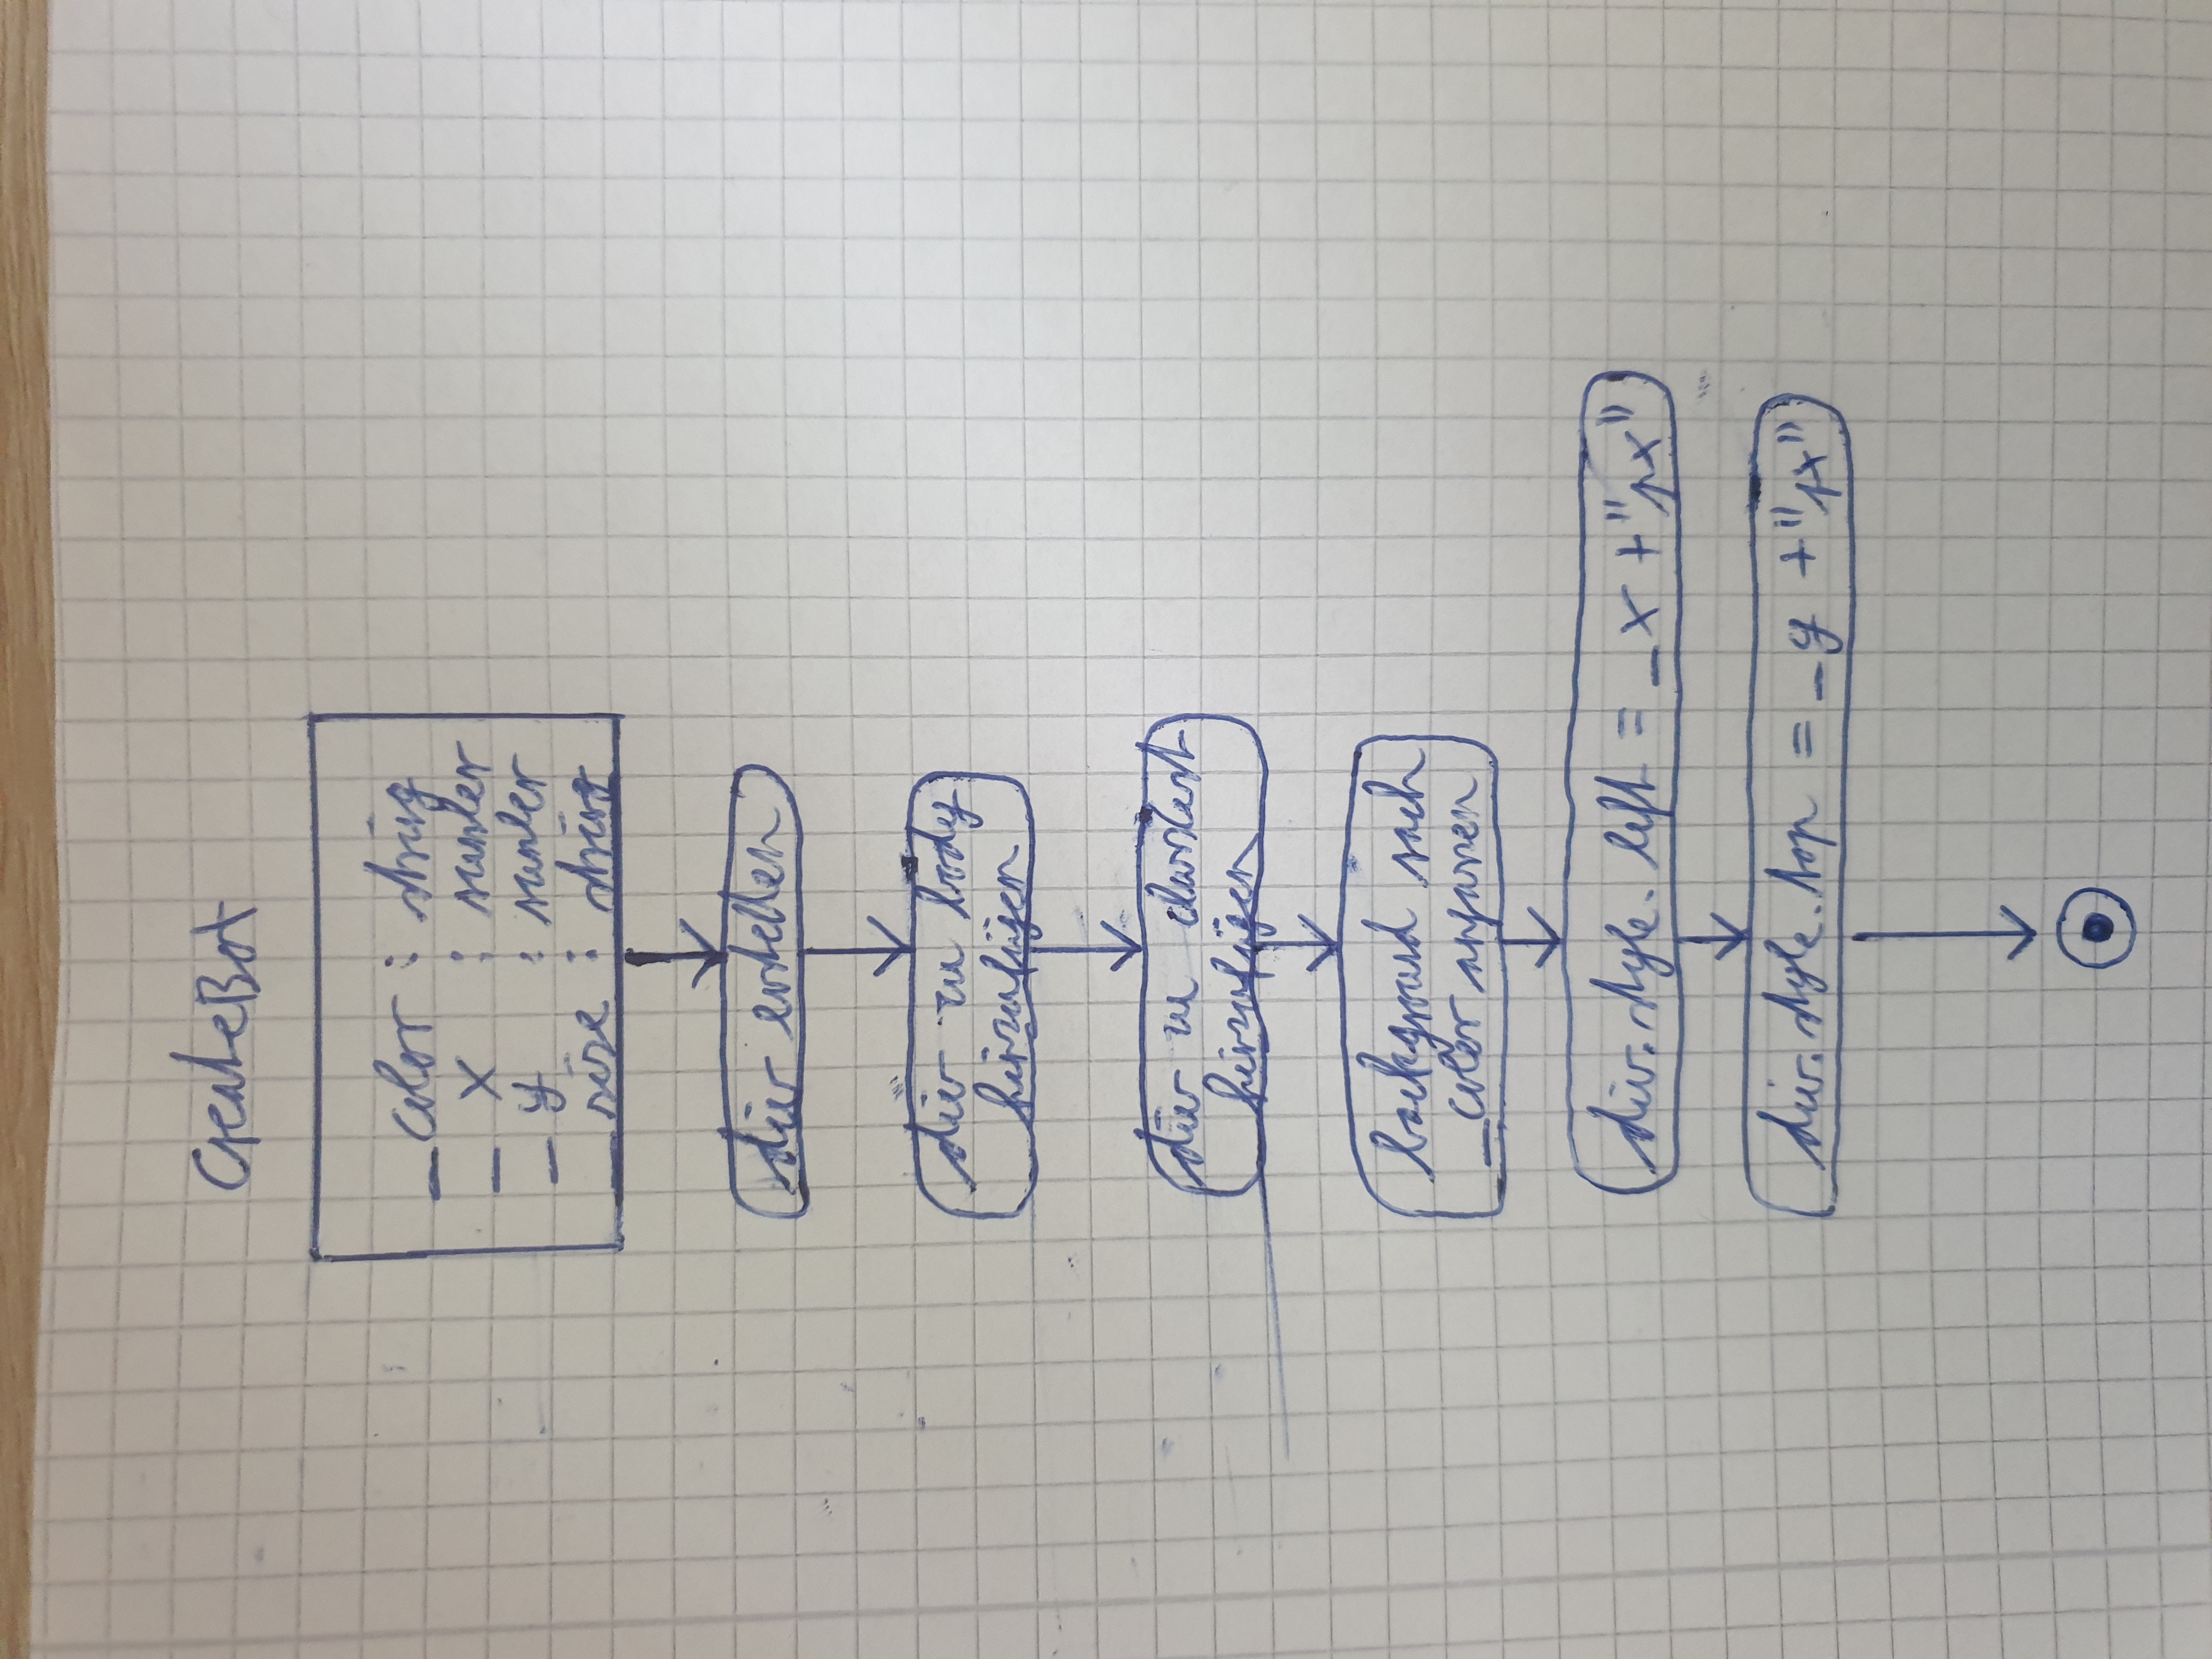 CreateBot
_color : string
_ x : number
_ y : number
_size : string
div erstellen
div zu body
hinzufügen
div zu classlist
hinzufügen
background nach
_color anpassen
div.style.left = _x +"px"
div.style.top = _y +"px"